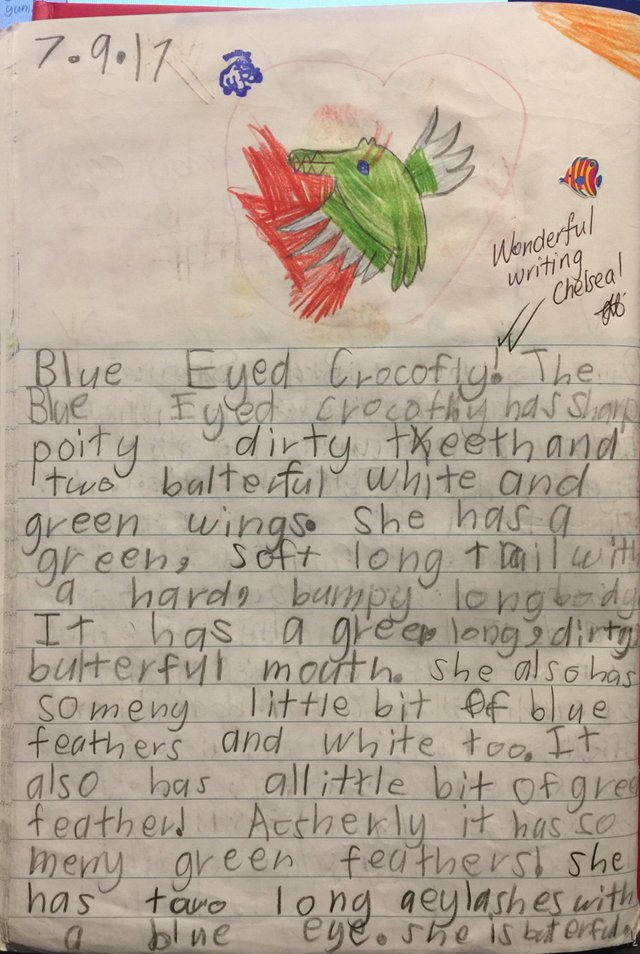 7.9.17
Wonderful
writing
Chelsea!
Blue Eyed Crocofly! The
Blue Eyed crocofly has sharp
poity dirty teeth and
two balterful white and
green wings. She has a
green, soft long tail with
a hard, bumpy long body
It has a green long, dirty
bulterful mouth. she also has
so meny little bit of blue
feathers and white too. It
also has allittle bit of gree
feather! Acsherly it has so
meny green feathers! she
has two long aeylashes with
a blue eye. she is buterful.